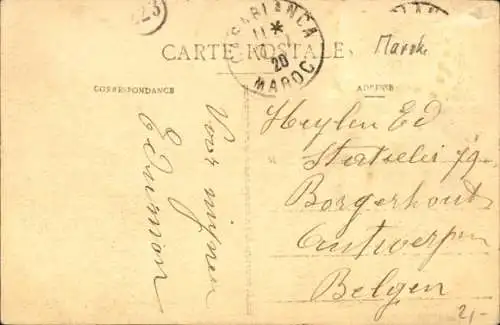 223
CASABLANCA
11 *
20
MAROC
CARTE POSTALE
Marok
CORRESPONDANCE
ADRESSE
Voor mijnen
Edurman
Heylen Ed
79
Borgerhout
Antwerpen
Belgen
2,-